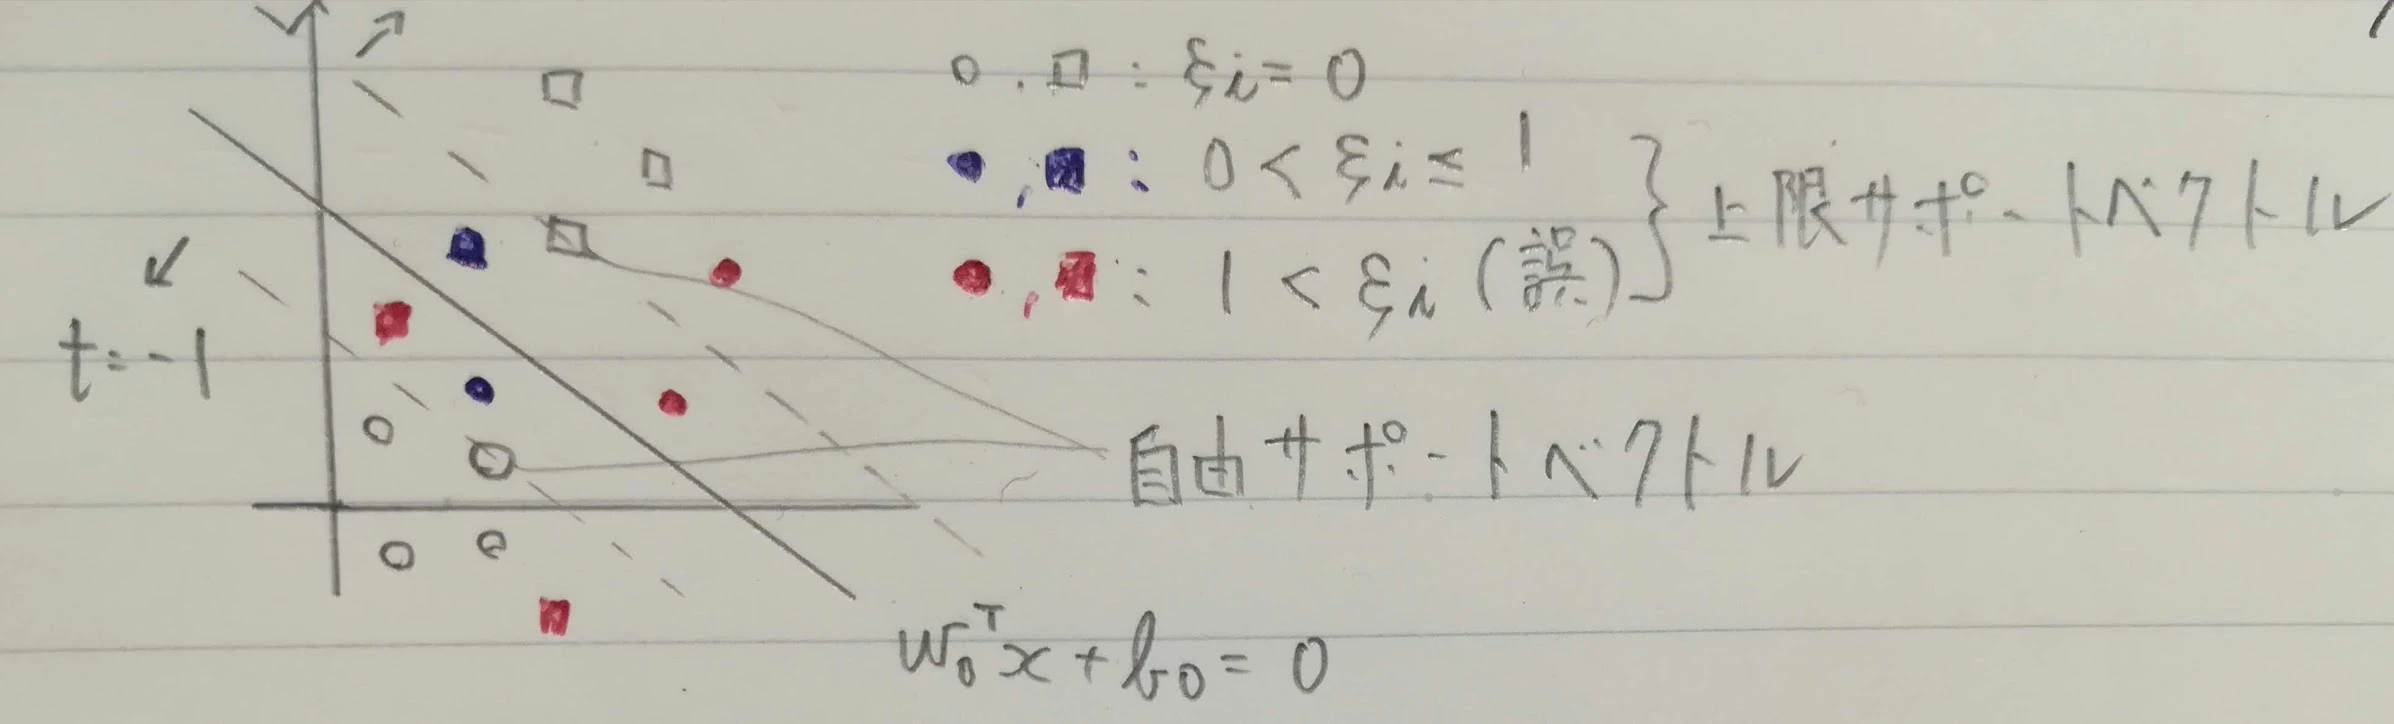 ○, □ : ξi = 0
●, ■ : 0 < ξi ≤ 1
●, ■ : 1 < ξi (誤)
} 上限サポートベクトル
t = -1
自由サポートベクトル
w₀ᵀx + b₀ = 0